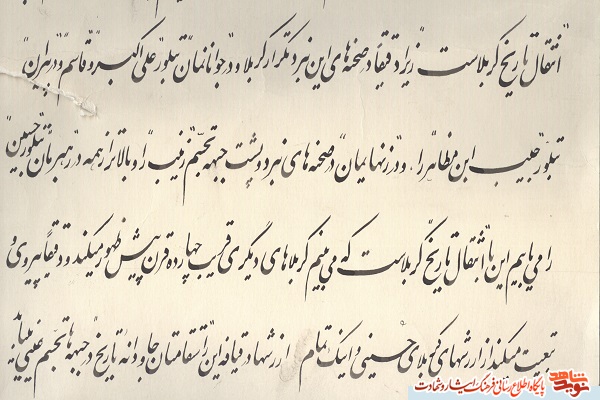 انتقال تاریخ کربلاست" زیرا دقیقاً در صحنه‌های این نبرد تکرار کربلا و در جوانانمان تبلور "علی اکبر" و "قاسم" و در پیران
تبلور "حبیب ابن مظاهر" را، و در زنهایمان در صحنه‌های نبرد و پشت جبهه تجسم "زینب" را و بالاتر از همه در رهبرمان تبلور "حسین"
را می‌یابیم این "انتقال تاریخ" کربلاست که می‌بینیم کربلاهای دیگری قریب چهارده قرن پیش ظهور میکند و دقیقاً پیروی و
تبعیت میکند از ارزشهای کربلای حسینی و اینک تمام ارزشها در قیافه این "استقامتمان جاودانه تاریخ" در جبهه‌ها تجسم عینی مییابد
نوید شاهد
پایگاه اطلاع رسانی فرهنگ ایثار و شهادت